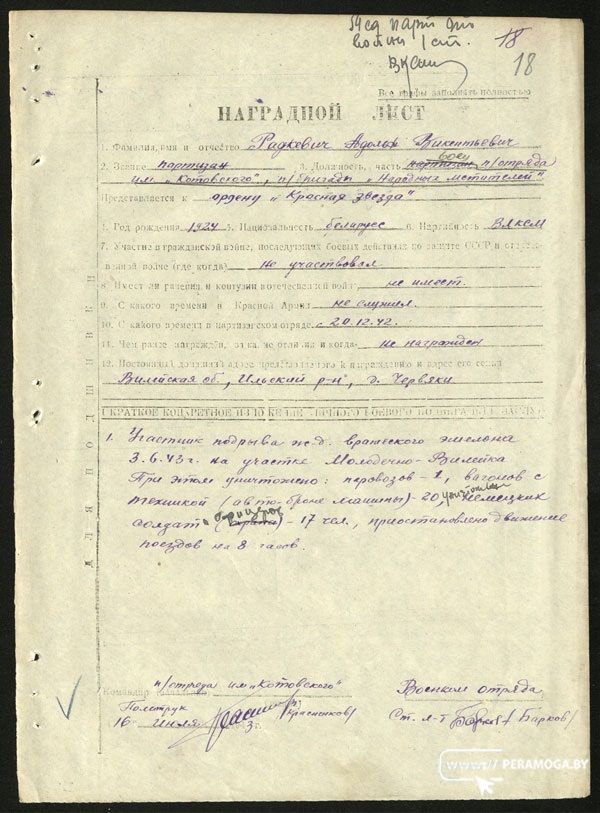 Мед парт От
войны I ст.
18
18
Все графы заполнять полностью
НАГРАДНОЙ ЛИСТ
1. Фамилия, имя и отчество Радкевич Адольф Викентьевич
2. Звание партизан 3. Должность, часть боец партизан п/отряда
им. „Котовского", п/бригады „Народных мстителей"
Представляется к ордену „Красная звезда"
4. Год рождения 1924 5. Национальность беларус 6. Партийность ВЛКСМ
7. Участие в гражданской войне, последующих боевых действиях по защите СССР и отечест-
венной войне (где когда) не участвовал
8. Имеет ли ранения и контузии в отечественной войне не имеет.
9. С какого времени в Красной Армии не служил.
10. С какого времени в партизанском отряде с 20.12.42.
11. Чем ранее награжден, за какие отличия и когда не награжден
12. Постоянный домашний адрес представляемого к награждению и адрес его семьи
Вилейская об., Ильский р-н, д. Червяки
I КРАТКОЕ КОНКРЕТНОЕ ИЗЛОЖЕНИЕ ЛИЧНОГО БОЕВОГО ПОДВИГА ИЛИ ЗАСЛУГ
1. Участник подрыва ж.д. вражеского эшелона
3.6.43 г. на участке Молодечно-Вилейка
При этом уничтожено: паровозов - 1, вагонов с
техникой (авто-броне машины) - 20, уничтожен немецких
солдат и офицеров - 17 чел., приостановлено движение
поездов на 8 часов.
Командир
п/отряда им. „Котовского"
Военком отряда
Политрук /Красненков/
Ст. л-т /Барков/
16 июля 3 г.
www// PERAMOGA.BY